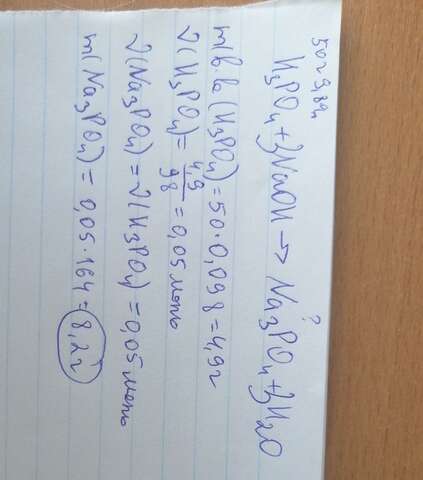 50г 9,8%
?
H₃PO₄ + 3NaOH → Na₃PO₄ + 3H₂O
m в-ва (H₃PO₄) = 50 · 0,098 = 4,9г
ν(H₃PO₄) = 4,9/98 = 0,05 моль
ν(Na₃PO₄) = ν(H₃PO₄) = 0,05 моль
m(Na₃PO₄) = 0,05 · 164 = 8,2г